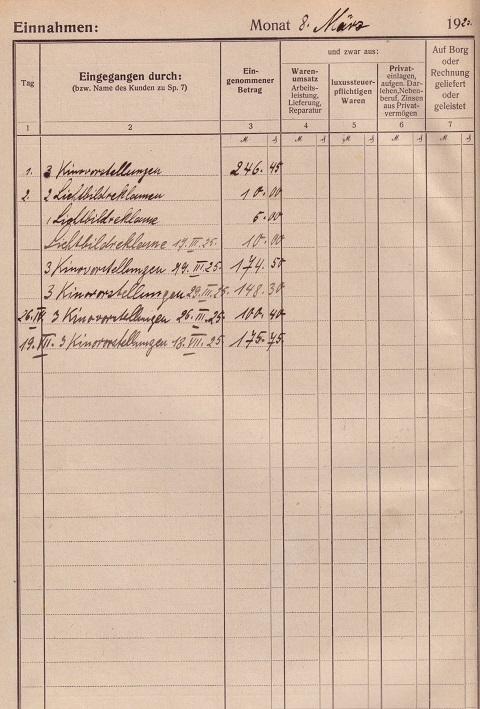 Einnahmen: Monat 8. März 192
und zwar aus:
Tag
Eingegangen durch:
(bzw. Name des Kunden zu Sp. 7)
Ein-
genommener
Betrag
Waren-
umsatz
Arbeits-
leistung,
Lieferung,
Reparatur
luxussteuer-
pflichtigen
Waren
Privat-
einlagen,
aufgen. Dar-
lehen, Neben-
beruf, Zinsen
aus Privat-
vermögen
Auf Borg
oder
Rechnung
geliefert
oder
geleistet
1 2 3 4 5 6 7
M ₰ M ₰ M ₰ M ₰ M ₰
1. 3 Kinovorstellungen 246.45
2. 2 Lichtbildreklamen 10.00
1 Lichtbildreklame 5.00
Lichtbildreklame III.25. 10.00
3 Kinovorstellungen III.25. 174.50
3 Kinovorstellungen 29.III.25. 148.30
26. 3 Kinovorstellungen 26. 25. 100.40
19.VII. 3 Kinovorstellungen 18.VII.25. 175.75